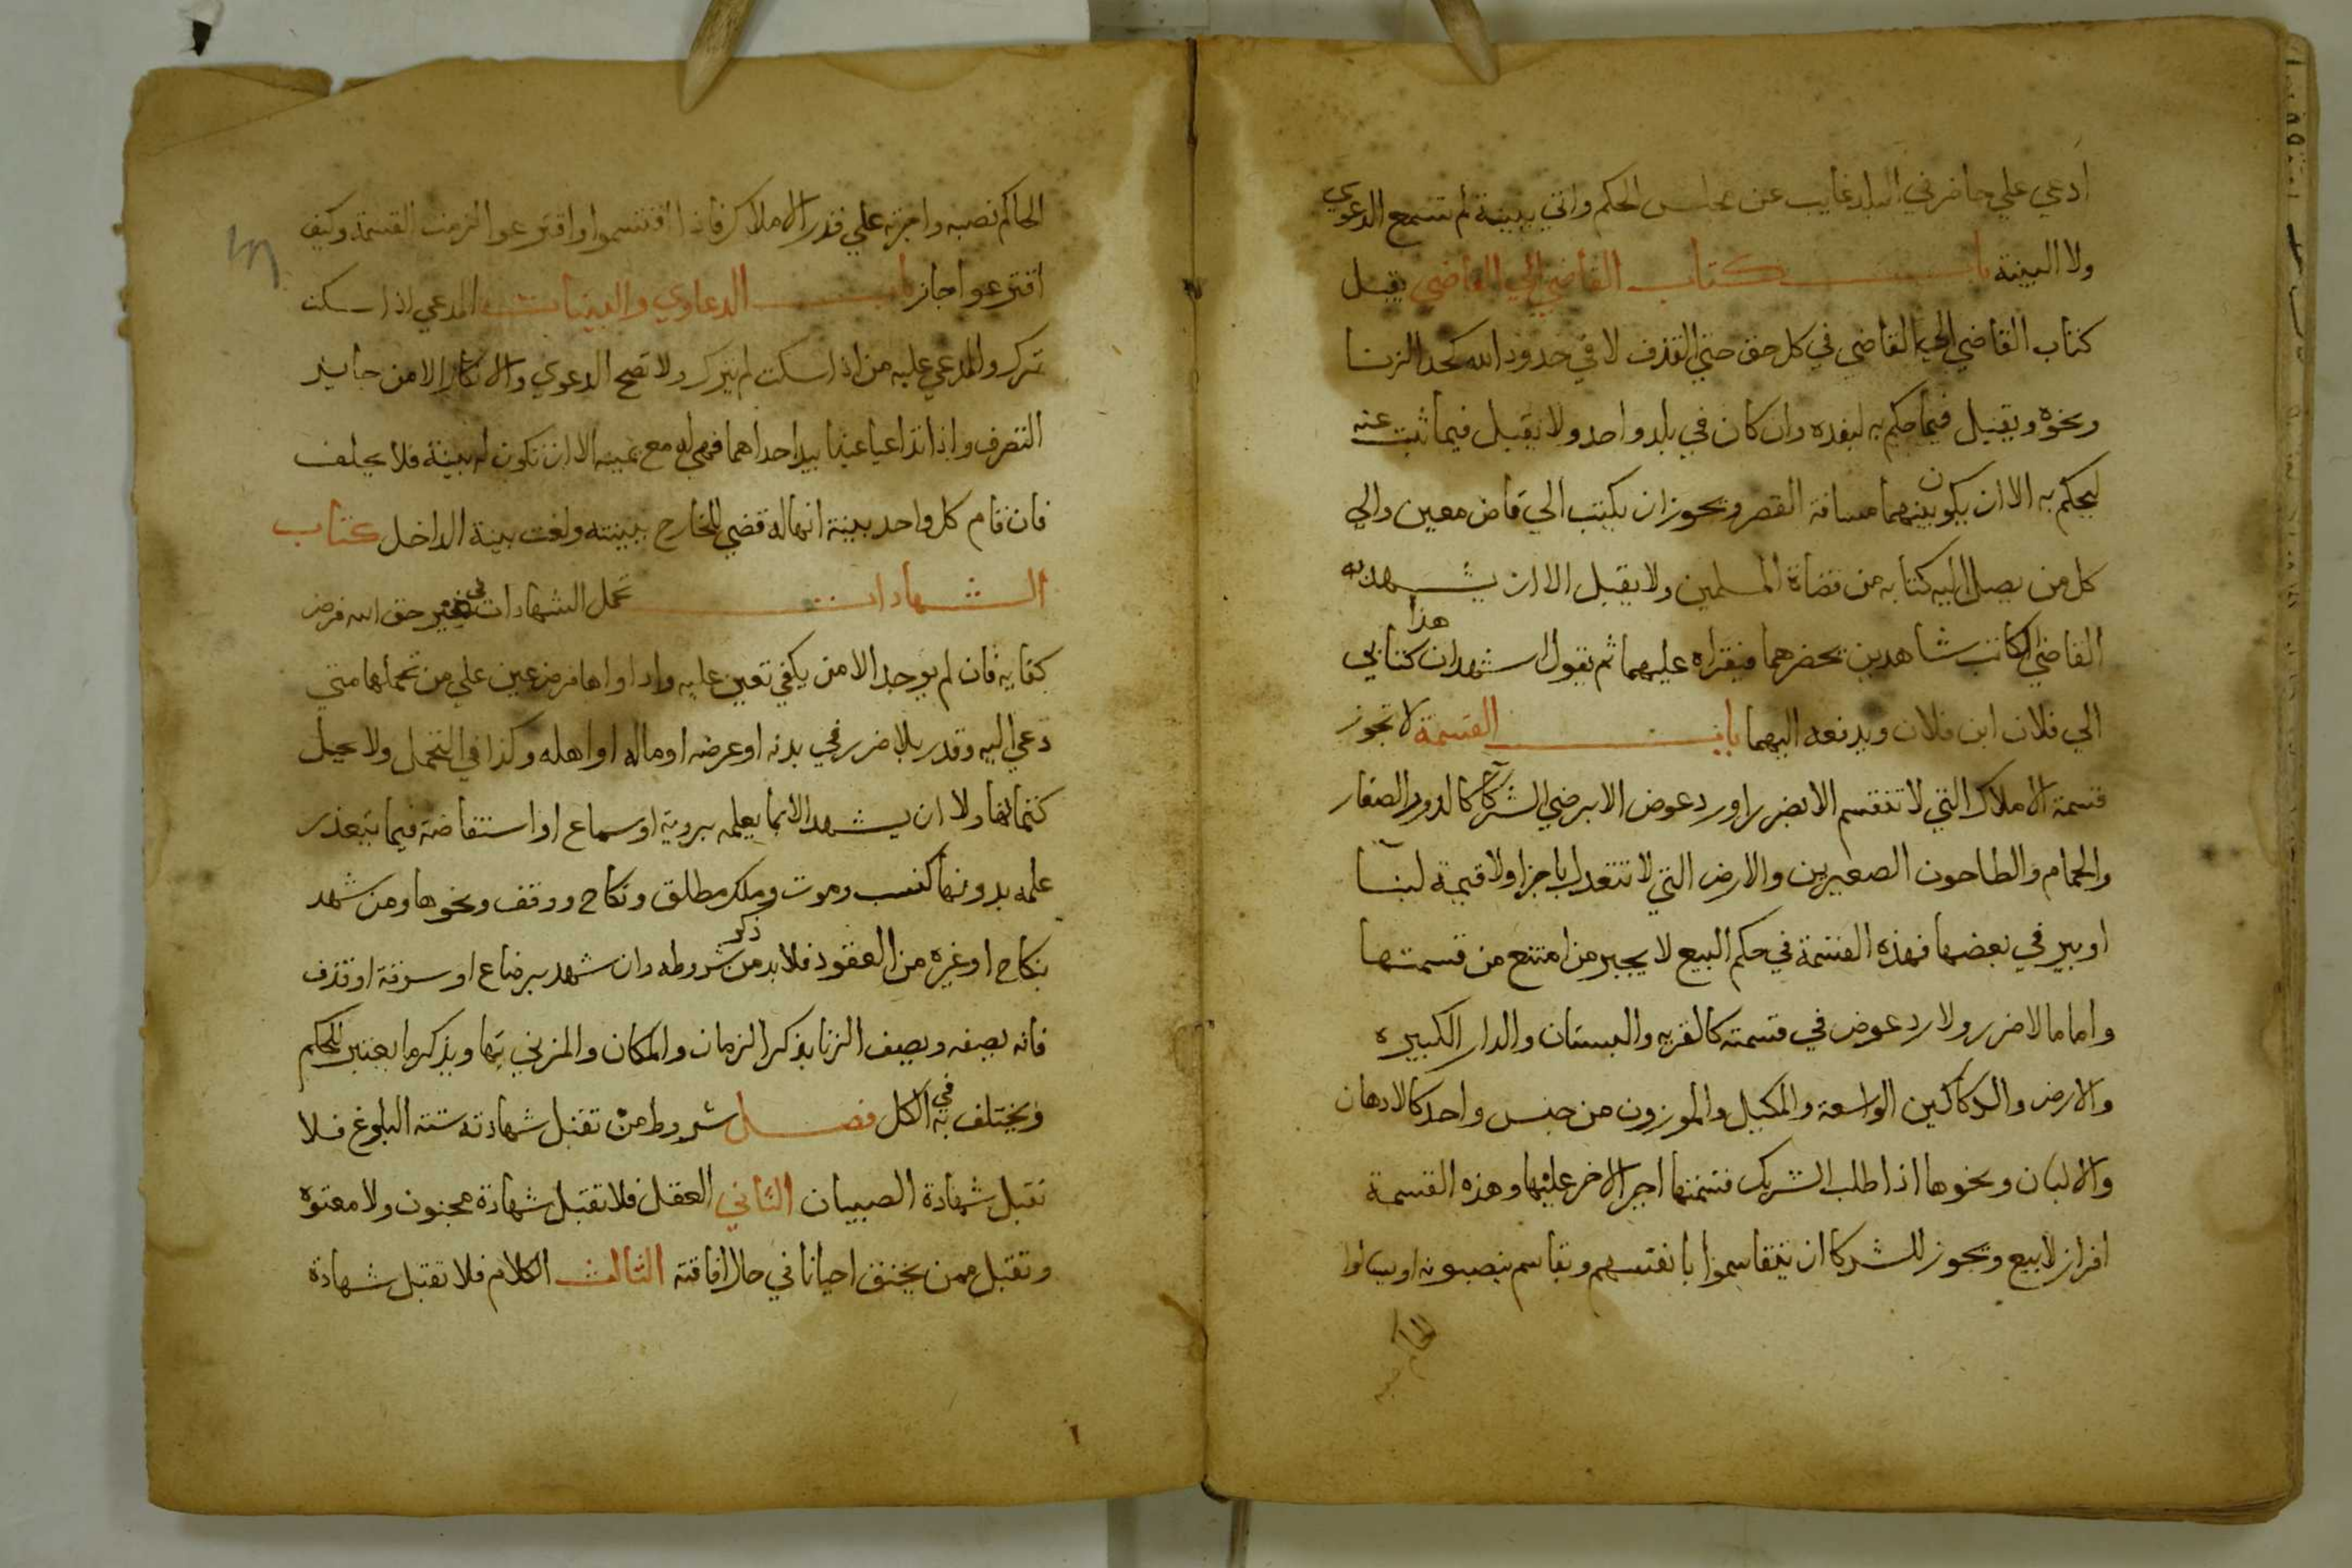 ادعي علي حاضر في البلد غايب عن مجلس الحكم واتي ببينة لم تسمع الدعوي
ولا البينة باب كتاب القاضي الي القاضي يقبل
كتاب القاضي الي القاضي في كل حق حتي القذف لا في حدود الله كحد الزنا
ونحوه ويقبل فيما حكم به لينفذه وان كان في بلد واحد ولا يقبل فيما ثبت عنده
ليحكم به الا ان يكون بينهما مسافة القصر ويجوز ان يكتب الي قاض معين والي
كل من يصل اليه كتابه من قضاة المسلمين ولا يقبل الا ان يشهد به
القاضي الكاتب شاهدين يحضرهما فيقراه عليهما ثم يقول اشهدا ان هذا كتابي
الي فلان ابن فلان ويدفعه اليهما باب القسمة لا تجوز
قسمة الاملاك التي لا تنقسم الا بضرر او رد عوض الا برضي الشركآ كالدور الصغار
والحمام والطاحون الصغيرين والارض التي لا تتعدل باجزا ولا قيمة لبنآ
او بير في بعضها فهذه القسمة في حكم البيع لا يجبر من امتنع من قسمتها
واما ما لا ضرر ولا رد عوض في قسمته كالقريه والبستان والدار الكبيره
والارض والدكاكين الواسعة والمكيل والموزون من جنس واحد كالادهان
والالبان ونحوها اذا طلب الشريك قسمتها اجبر الاخر عليها وهذه القسمة
افراز لا بيع ويجوز للشركا ان يتقاسموا بانفسهم وبقاسم ينصبونه او يسالوا
الحاكم نصبه
الحاكم نصبه واجرته علي قدر الاملاك فاذا اقتسموا او اقترعوا لزمت القسمة وكيف
اقترعوا جاز باب الدعاوي والبينات المدعي اذا سكت
ترك والمدعي عليه من اذا سكت لم يترك ولا تصح الدعوي والانكار الا من جايز
التصرف واذا تداعيا عينا بيد احداهما فهي له مع يمينه الا ان تكون له بينة فلا يحلف
فان قام كل واحد بينة انها له قضي للخارج ببينته ولغت بينة الداخل كتاب
الشهادات تحمل الشهادات في غير حق الله فرض
كفايه فان لم يوجد الا من يكفي تعين عليه وان اداوها فرض عين علي من تحملها متي
دعي اليه وقدر بلا ضرر في بدنه او عرضه او ماله او اهله وكذا في التحمل ولا يحل
كتمانها ولا ان يشهد الا بما يعلمه بروية او سماع او استفاضة فيما يتعذر
علمه بدونها كنسب وموت وملك مطلق ونكاح ووقف ونحوها ومن شهد
بنكاح او غيره من العقود فلا بد من ذكر شروطه وان شهد برضاع او سرقة او قذف
فانه يصفه ويصف الزنا بذكر الزمان والمكان والمزني بها ويذكر ما يعتبر للحكم
ويختلف به في الكل فصل شروط من تقبل شهادته ستة البلوغ فلا
تقبل شهادة الصبيان الثاني العقل فلا تقبل شهادة مجنون ولا معتوه
وتقبل ممن يخنق احيانا في حال افاقته الثالث الكلام فلا تقبل شهادة